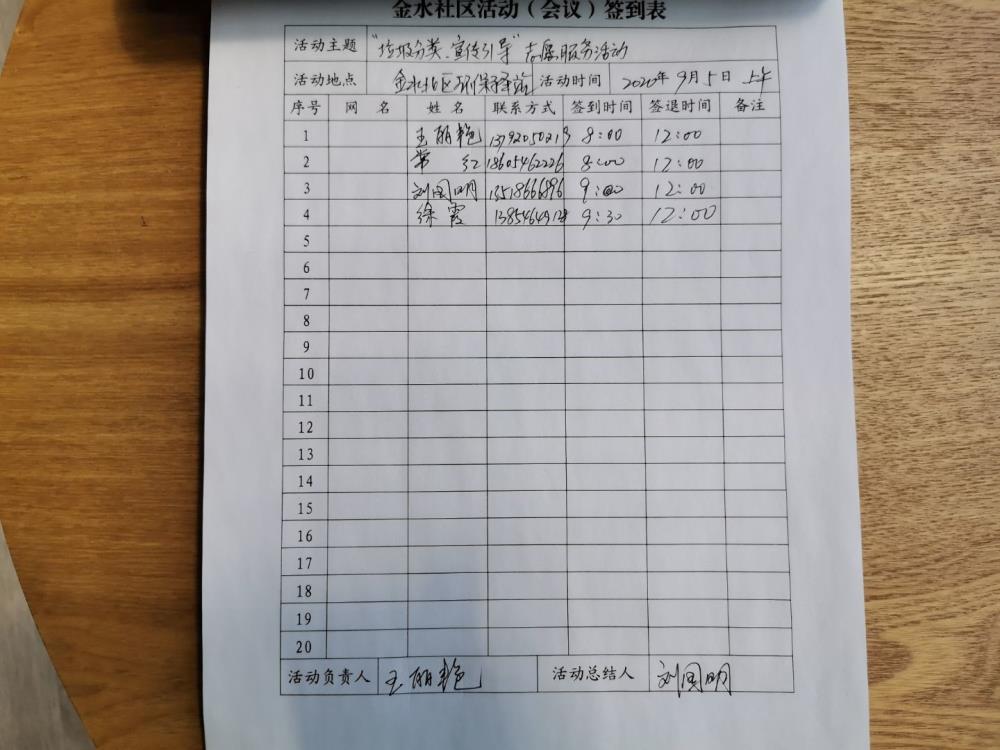 金水社区活动（会议）签到表
活动主题 “垃圾分类、宣传引导”志愿服务活动
活动地点 金水社区环保驿站 活动时间 2020年9月5日 上午
序号 网名 姓名 联系方式 签到时间 签退时间 备注
1 王丽艳 8:00 12:00
2 常红 18605462226 8:00 12:00
3 刘国明 13518666896 9:00 12:00
4 徐霞 9:30 12:00
5
6
7
8
9
10
11
12
13
14
15
16
17
18
19
20
活动负责人 王丽艳 活动总结人 刘国明